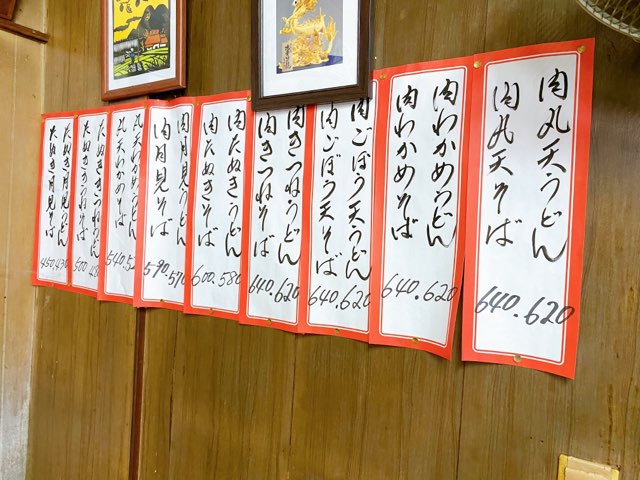 肉丸天うどん
肉丸天そば
640.620
肉わかめうどん
肉わかめそば
640.620
肉ごぼう天うどん
肉ごぼう天そば
640.620
肉きつねうどん
肉きつねそば
640.620
肉たぬきうどん
肉たぬきそば
600.580
肉月見うどん
肉月見そば
590.570
丸天わかめうどん
丸天わかめそば
540.52
たぬききつねうどん
たぬききつねそば
500.48
たぬき月見うどん
たぬき月見そば
450.430